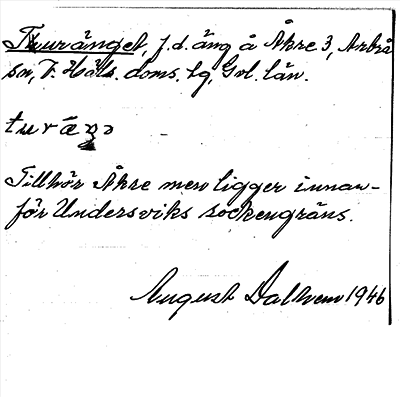 Turänget, f.d. äng å Åkre 3, Arbrå
sn, V. Häls. doms. lg, Gvl. län.
turäŋə
Tillhör Åkre men ligger innan-
för Undersviks sockengräns.
August Dalhem 1946